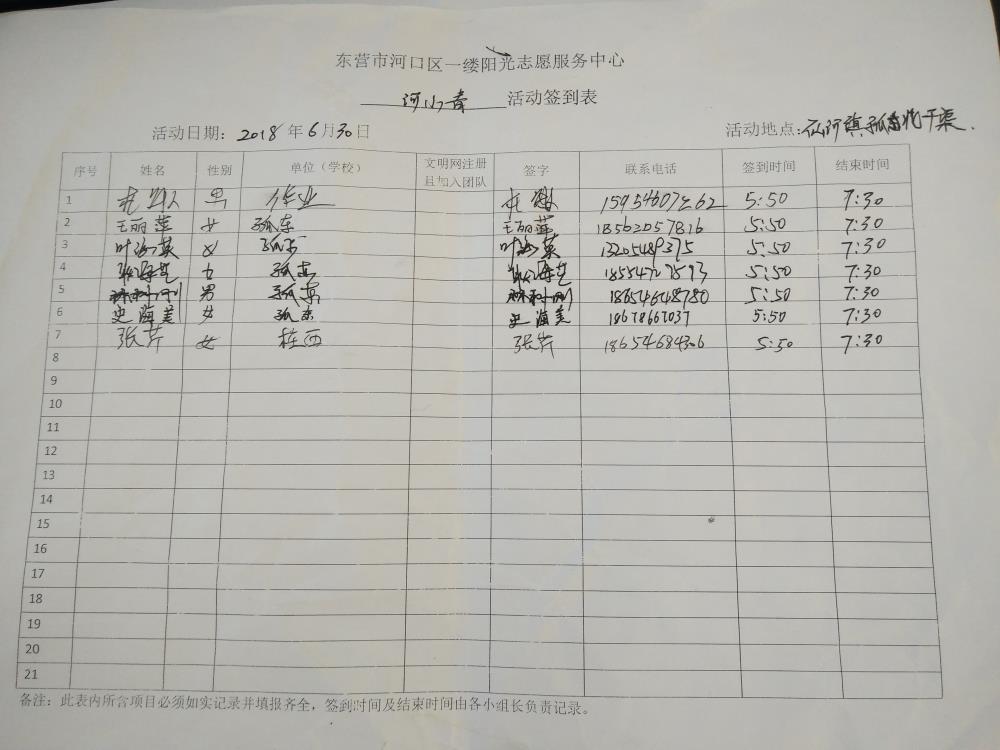 东营市河口区一缕阳光志愿服务中心
河小青 活动签到表
活动日期：2018年6月30日 活动地点：
序号 姓名 性别 单位（学校） 文明网注册且加入团队 签字 联系电话 签到时间 结束时间
1 男 作业 5:50 7:30
2 王丽萍 女 孤东 王丽萍 18562057816 5:50 7:30
3 叶海英 女 孤东 叶海英 13205489375 5:50 7:30
4 女 孤东 5:50 7:30
5 林利刚 男 孤东 林利刚 18654648780 5:50 7:30
6 史海美 女 孤东 史海美 18678667037 5:50 7:30
7 张芹 女 桩西 张芹 18654684306 5:50 7:30
8
9
10
11
12
13
14
15
16
17
18
19
20
21
备注：此表内所含项目必须如实记录并填报齐全，签到时间及结束时间由各小组长负责记录。